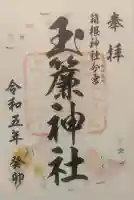 奉拝
箱根神社分霊
玉簾神社
令和五年 癸卯